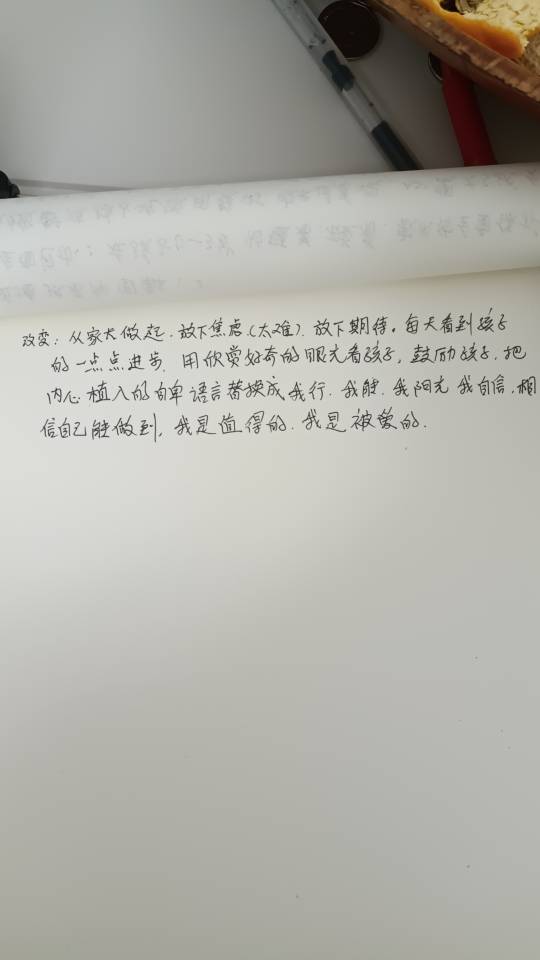 改变：从家长做起，放下焦虑（太难）. 放下期待。每天看到孩子
的一点点进步. 用欣赏好奇的眼光看孩子，鼓励孩子. 把
内心植入的自卑语言替换成我行. 我能. 我阳光 我自信. 相
信自己能做到，我是值得的. 我是被爱的.